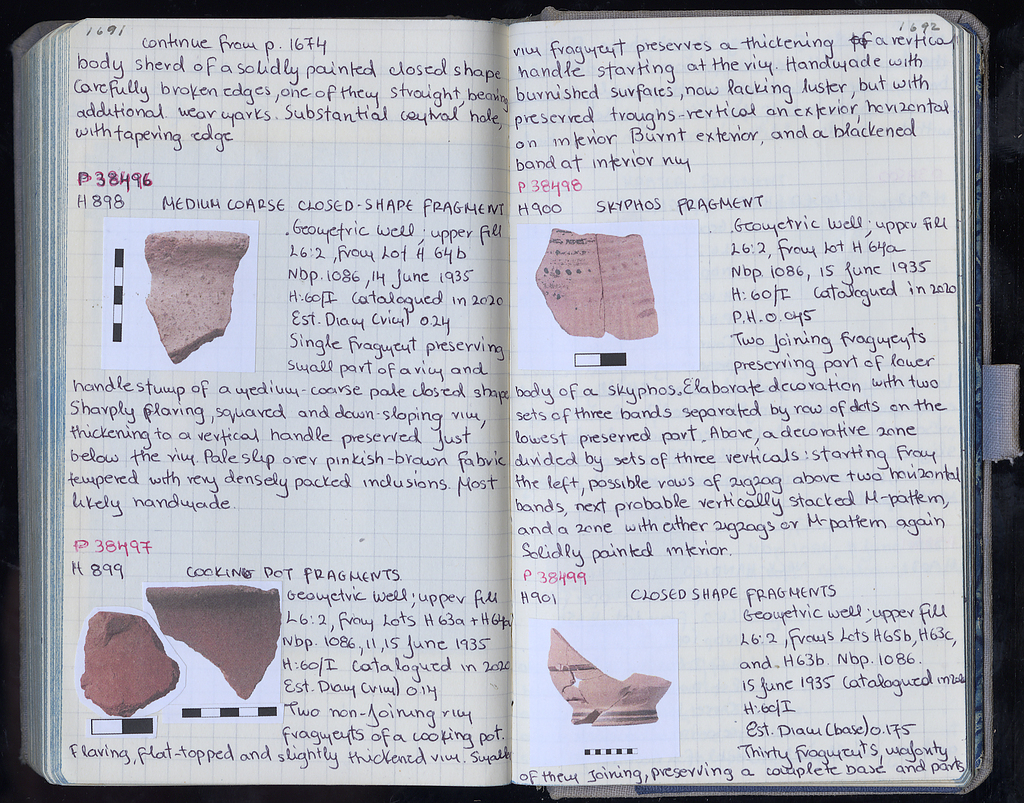 1691
continue from p. 1674
body sherd of a solidly painted closed shape
Carefully broken edges, one of them straight, bearing
additional wear marks. Substantial central hole,
with tapering edge
P 38496
H 898 MEDIUM COARSE CLOSED-SHAPE FRAGMENT
Geometric well; upper fill
L6:2, from Lot H 64b
Nbp. 1086, 14 June 1935
H:60/I Catalogued in 2020
Est. Diam (rim) 0.24
Single fragment preserving
small part of a rim and
handle stump of a medium-coarse pale closed shape
Sharply flaring, squared and down-sloping rim,
thickening to a vertical handle preserved just
below the rim. Pale slip over pinkish-brown fabric
tempered with very densely packed inclusions. Most
likely handmade.
P 38497
H 899 COOKING POT FRAGMENTS
Geometric well; upper fill
L6:2, from Lots H63a + H64a
Nbp. 1086, 11, 15 June 1935
H:60/I Catalogued in 2020
Est. Diam (rim) 0.14
Two non-joining rim
fragments of a cooking pot.
Flaring, flat-topped and slightly thickened rim. Smaller
1692
rim fragment preserves a thickening of a vertical
handle starting at the rim. Handmade with
burnished surfaces, now lacking luster, but with
preserved troughs-vertical on exterior, horizontal
on interior. Burnt exterior, and a blackened
band at interior rim
P 38498
H900 SKYPHOS FRAGMENT
Geometric well; upper fill
L6:2, from Lot H 64a
Nbp. 1086, 15 June 1935
H:60/I Catalogued in 2020
P.H. 0.045
Two joining fragments
preserving part of lower
body of a skyphos. Elaborate decoration with two
sets of three bands separated by row of dots on the
lowest preserved part. Above, a decorative zone
divided by sets of three verticals: starting from
the left, possible rows of zigzag above two horizontal
bands, next probable vertically stacked M-pattern,
and a zone with either zigzags or M-pattern again
Solidly painted interior.
P 38499
H901 CLOSED SHAPE FRAGMENTS
Geometric well; upper fill
L6:2, from Lots H65b, H63c,
and H63b. Nbp. 1086.
15 June 1935 Catalogued in 2020
H:60/I
Est. Diam (base) 0.175
Thirty fragments, majority
of them joining, preserving a complete base and parts